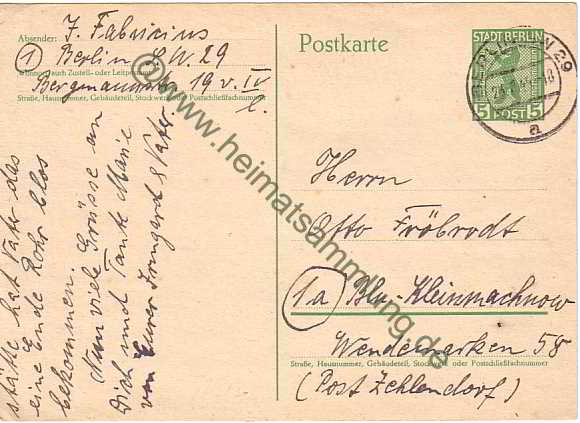 Absender: J. Fabricius
① Berlin S.W. 29
Wohnort, auch Zustell- oder Leitpostamt
Bergmannstr. 19 v. IV
l.
Straße, Hausnummer, Gebäudeteil, Stockwerk oder Postschließfachnummer
Postkarte
STADT BERLIN
5 POST 5
BERLIN SW 29
a
Herrn
Otto Fröbrodt
1a Bln-Kleinmachnow
Wendemarken 58
Straße, Hausnummer, Gebäudeteil, Stockwerk oder Postschließfachnummer
(Post Zehlendorf)
stätte hat Vater das
eine Ende Rohr blos
bekommen.
Nun viele Grüsse an
Dich und Tante Marie
von Eurer Irmgard & Vater
@www.heimatsammlung.de